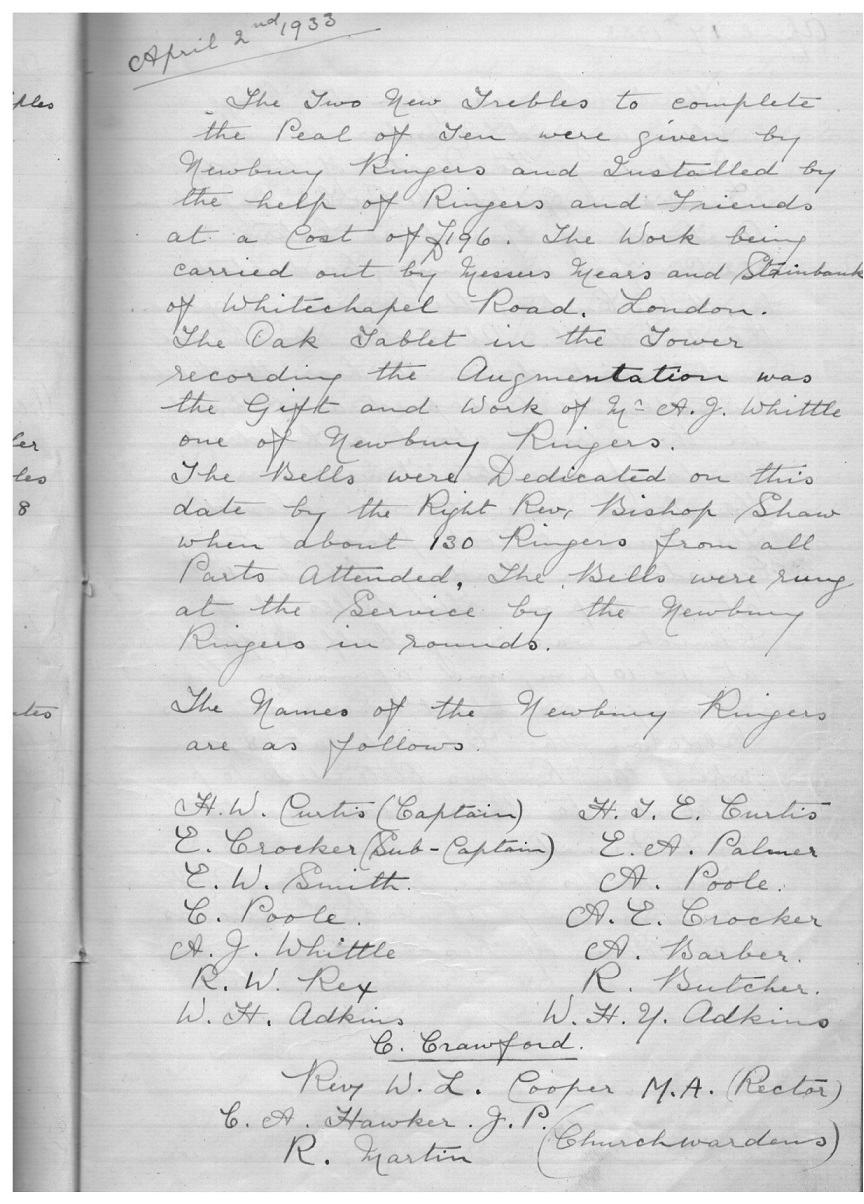 April 2nd 1933
The Two New Trebles to complete
the Peal of Ten were given by
Newbury Ringers and Installed by
the help of Ringers and Friends
at a Cost of £196. The Work being
carried out by Messers Mears and Stainbank
of Whitechapel Road, London.
The Oak Tablet in the Tower
recording the Augmentation was
the Gift and Work of Mr A. J. Whittle
one of Newbury Ringers.
The Bells were Dedicated on this
date by the Right Rev. Bishop Shaw
when about 130 Ringers from all
Parts Attended, The Bells were rung
at the Service by the Newbury
Ringers in rounds.
The Names of the Newbury Ringers
are as follows.
H. W. Curtis (Captain) H. T. E. Curtis
E. Crocker (Sub-Captain) E. A. Palmer
E. W. Smith. A. Poole.
C. Poole. A. E. Crocker
A. J. Whittle A. Barber.
R. W. Rex R. Butcher.
W. H. Adkins W. H. Y. Adkins
C. Crawford.
Rev W. L. Cooper M.A. (Rector)
C. A. Hawker. J. P.
R. Martin (Churchwardens)
8